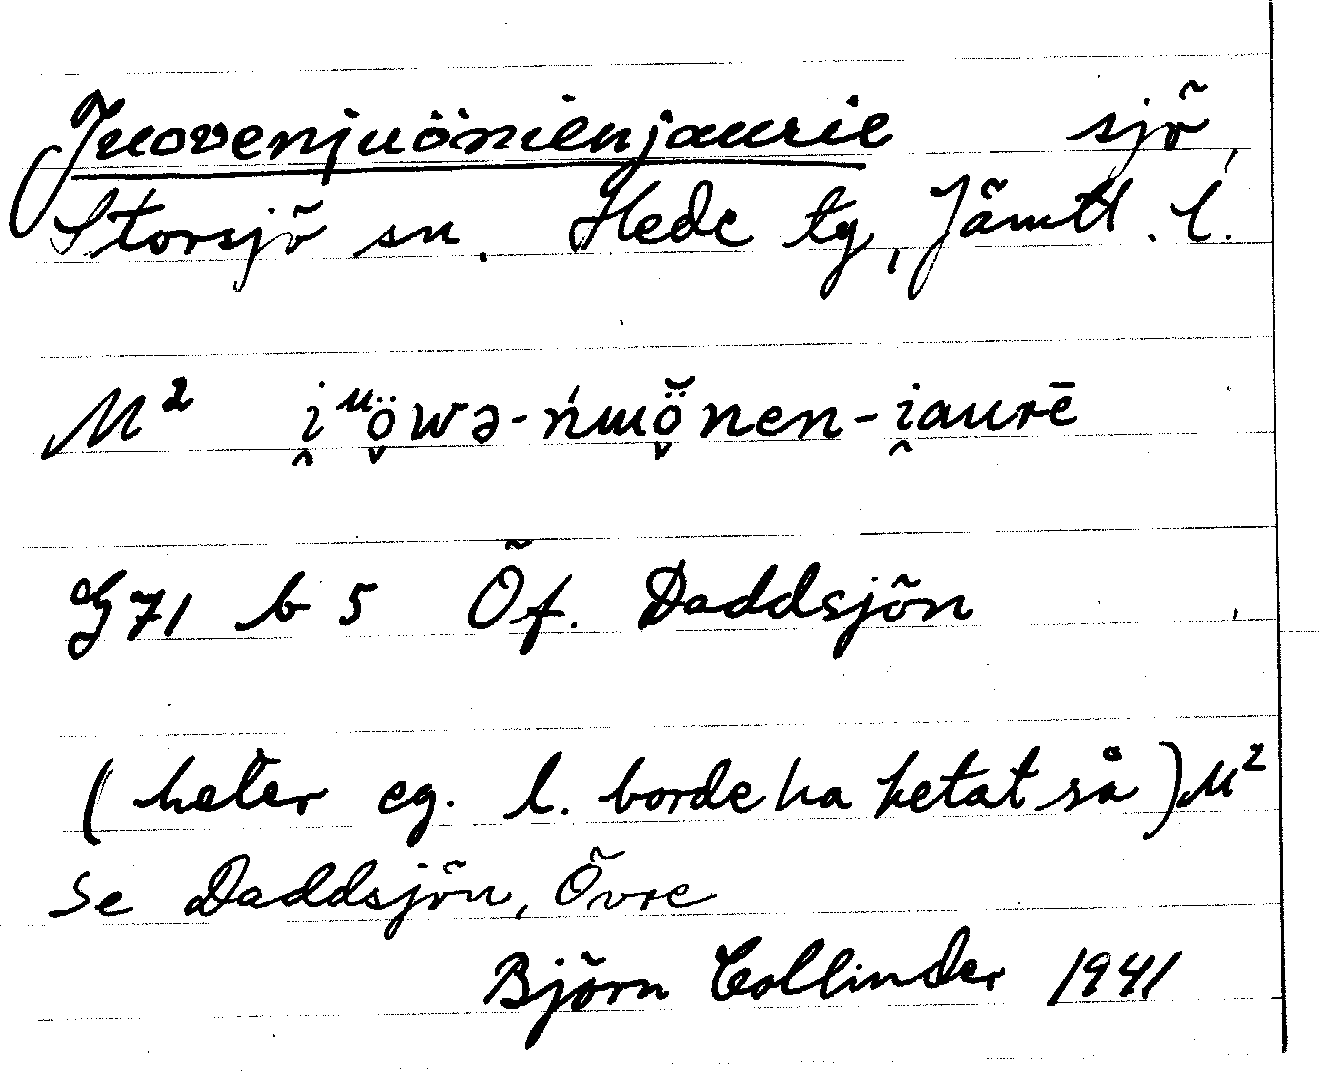 Juovenjuönienjaurie sjö,
Storsjö sn. Hede tg, Jämtl. l.
M² i̯ᵘö̬wə-ńɯö̬̆nen-i̯aurē
G71 b 5 Öf. Daddsjön
(heter eg. l. borde ha hetat så) M²
Se Daddsjön, Övre
Björn Collinder 1941